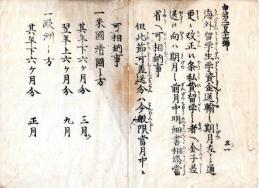 海外留學生學資金送輸ノ期月左ノ通
更ニ改正ニ条私費留學生ノ者ハ金子差
送ノ向ハ期月ノ前月中明細書相添當
省ヘ可相納事
但此節可差送分ハ八般限當月中ニ
可相納事
一米國清國ノ方
其年下六ケ月分 三月
翌年上六ケ月分 九月
一歐洲ノ方
其年下六ケ月分 正月